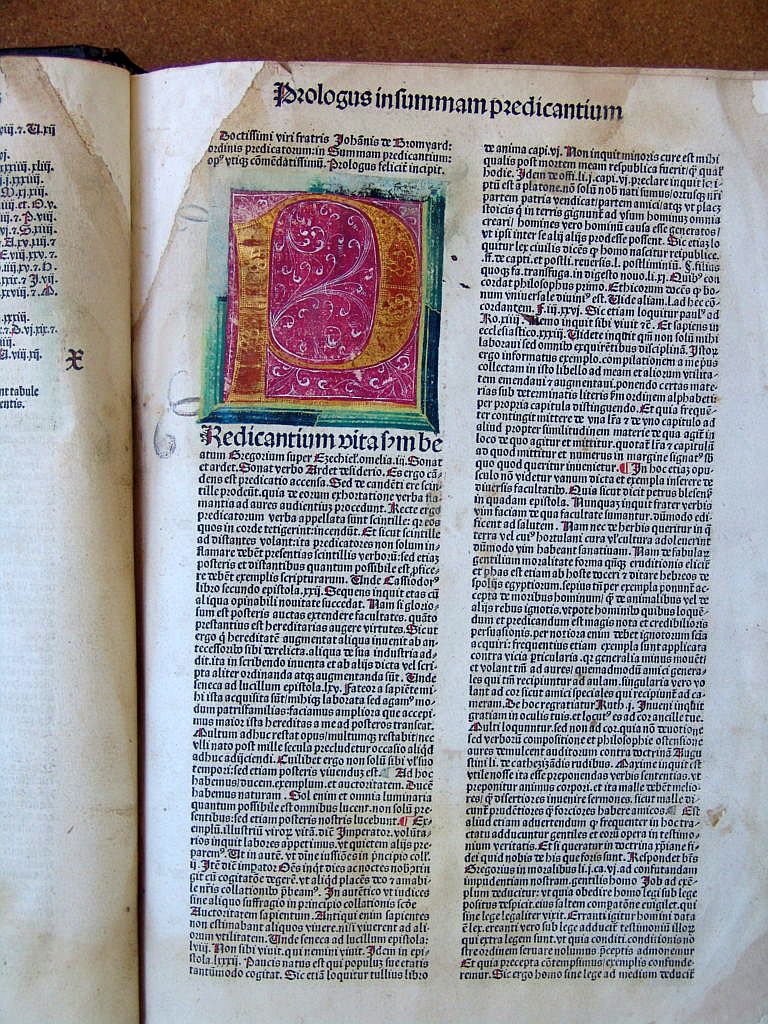 Prologus in summam predicantium
Doctissimi viri fratris Johānis de Bromyard:
ordinis predicatorum: in Summam predicantium:
op⁹ vtiqȝ cōmēdatissimū. Prologus felicit̃ incipit.
P
Redicantium vita ẜm be
atum Gregorium super Ezechiel̃.omelia.iij. Sonat
et ardet. Sonat verbo Ardet desiderio. Es ergo cā⸗
dens est predicatio accensa. Sed de candēti ere scin⸗
tille prodeūt. quia de eorum exhortatione verba fla⸗
mantia ad aures audientiuȝ procedunt. Recte ergo
predicatorum verba appellata sunt scintille: qꝛ eos
quos in corde tetigerint: incendūt. Et sicut scintille
ad distantes volant: ita predicatores non solum in⸗
flamare debēt presentias scintillis verborū: sed etiaȝ
posteris et distantibus quantum possibile est ꝓfice⸗
re debēt exemplis scripturarum. Unde Cassiodor⁹
libro secundo epistola.xxij. Sequens inquit etas cū
aliqua opinabili nouitate succedat. Nam si glorio⸗
sum est posteris auctas extendere facultates. quāto
prestantius est hereditarias augere virtutes. Sicut
ergo q̇ hereditatē augmentat aliqua inuenit ab an⸗
tecessoribꝰ sibi derelicta. aliqua de sua industria ad⸗
dit. ita in scribendo inuenta et ab alijs dicta vel scri⸗
pta aliter ordinanda atqȝ augmentanda sūt. Unde
seneca ad lucillum epistola.lxv. Fateor a sapiēte mi⸗
hi ista acquisita sūt: mihiqȝ laborata sed agam⁹ mo⸗
dum patrisfamilias: faciamus ampliora que accepi⸗
mus maior ista hereditas a me ad posteros transeat.
Multum adhuc restat opus: multumqȝ restabit: nec
vlli nato post mille secula precludetur occasio aliqd̓
adhuc adijciendi. Cuilibet ergo non solū sibi vl̓ suo
tempori: sed etiam posteris viuenduȝ est. Ad hoc
habemus: ducem. exemplum. et auctoritatem. Ducē
habemus naturam. Sol enim et omnia luminaria
quantum possibile est omnibus lucent. non solū pre⸗
sentibus: sed etiam posteris nostris lucebunt. ¶ Ex⸗
emplū. illustriū viroꝝ vitā. dic̄ Imperator. volūta⸗
rios inquit labores appetimus. vt quietem alijs pre⸗
parem⁹. Ut in autē. vt diuine iussiōes in pncipio coll̓.
ij. Itē dic̄ impator Oēs inqt dies ac noctes nob̓ ptin
git cū cogitatōe degere. vt aliqd placēs deo
sine aliquo suffragio in principio collationis
Auctoritatem sapientum. Antiqui enim sapientes
non estimabant aliquos viuere. nisi viuerent ad ali⸗
orum vtilitatem. Unde seneca ad lucillum epistola:
lviij. Non sibi viuit. qui nemini viuit. Idem in epi⸗
stola.lxxxij. Paucis natus est qui populuȝ sue etatis
tantūmodo cogitat. Sic etiā loquitur tullius libro
de anima capi.vj. Non inquit minoris cure est mihi
qualis post mortem meam respublica fuerit: q̄ȝ qual̓
hodie. Idem de offi. li.j. capi.vj. preclare inquit scri⸗
ptū est a platone. nō solū nob̓ nati sumus: ortusqȝ nr̄i
partem patria vendicat: partem amici: atqȝ vt placȝ
stoicis q̇ in terris gignunt̃ ad vsum hominuȝ omnia
creari: homines vero hominū causa esse generatos:
vt ipsi inter se alij alijs prodesse possent. Sic etiaȝ lo
quitur lex ciuilis dicēs q̇ homo nascitur reipublice.
Ro.xiiij. Nemo inquit sibi viuit ꝛc̄. Et sapiens in
ecclesiastico.xxxiij. Uidete inquit qm̄ non soli mihi
laboraui sed omnibꝰ exquirētibus disciplinā. Istoꝝ
ergo informatus exemplo. compilationem a me pͥus
collectam in isto libello ad meam et aliorum vtilita⸗
tem emendaui ⁊ augmentaui. ponendo certas mate⸗
rias sub determinatis literis ẜm ordinem alphabeti
per propria capitula distinguendo. Et quia frequē⸗
ter contingit mittere de vna lr̄a ⁊ de vno capitulo ad
aliud propter similitudinem materie de qua agit̃ in
loco de quo agitur et mittitur. quota ē lr̄a ⁊ capitulū
ad quod mittitur et numerus in margine signat̃ sb̓
quo quod queritur inuenietur. ¶ In hoc etiaȝ opu⸗
sculo nō videtur vanum dicta et exempla inserere de
diuersis facultatibꝰ. Quia sicut dicit petrus blesens̓
in quadam epistola. Nunquaȝ inquit frater verbis
vim faciam de qua facultate sumantur. dūmodo edi⸗
ficent ad salutem. Nam nec de herbis queritur in q̄
terra vel cui⁹ hortulani cura vl̓ cultura adoleuerint
dūmodo vim habeant sanatiuam. Nam de fabulaꝝ
gentilium moralitate forma qn̄qȝ eruditionis elicit̃
et phas est etiam ab hoste doceri ⁊ ditare hebreos de
spolijs egyptiorum. sepius tn̄ per exempla ponunt̃ ac⸗
cepta de moribus hominum: q̄ȝ de animalibus vel de
alijs rebus ignotis. vtpote hominibꝰ quibus loquē⸗
dum et predicandum est magis nota et credibilioris
persuasionis. per notiora enim debet ignotorum scīa
acquiri: frequentius etiam exempla sunt applicata
contra vicia ꝑticularia. qꝛ generalia minus mouēt:
et volant tm̄ ad aures: quemadmodū amici genera⸗
les qui tm̄ recipiuntur ad aulam. singularia vero vo
lant ad cor sicut amici speciales qui recipiunt̃ ad ca⸗
meram. De hoc regratiatur Ruth.ij. Inueni inquit
gratiam in oculis tuis. et locut⁹ es ad cor ancille tue.
Multi loquuntur. sed non ad cor. quia nō deuotione
sed verborū compositione et philosophie ostensione
aures demulcent auditorum contra doctrinā Augu
stini li. de cathezizādis rudibus. Maxime inquit est
vtile nosse ita esse preponendas verbis sententias. vt
preponitur animus corpori. et ita malle debet melio⸗
res: q̄ȝ disertiores inuenire sermones. sicut malle di⸗
cunt̃ prudētiores q̄ȝ formosiores habere amicos. Est
aliud etiam aduertendum q̇ frequenter in hoc tra⸗
ctatu adducuntur gentiles et eorū opera in testimo⸗
nium veritatis. Et si queratur in doctrina xp̄iane fi⸗
dei quid nobis de his que foris sunt. Respondet bt̄s
Gregorius in moralibus li.j. ca.vj. ad confutandam
impudentiam nostram. gentilis homo Job ad exē⸗
plum deducitur. vt quia obedire homo legi sub lege
positus despicit. eius saltem compatōne euigilet. qui
sine lege legaliter vixit. Erranti igitur homini data
ē lex. creanti vero sub lege adducit̃ testimoniū illoꝝ
qui extra legem sunt. vt quia conditi. conditionis no
stre ordinem seruare nolumus p̄ceptis admonemur
Et quia precepta cōtempsimus: exemplis confunde
remur. Sic ergo homo sine lege ad medium deducit̃
X
nt tabule